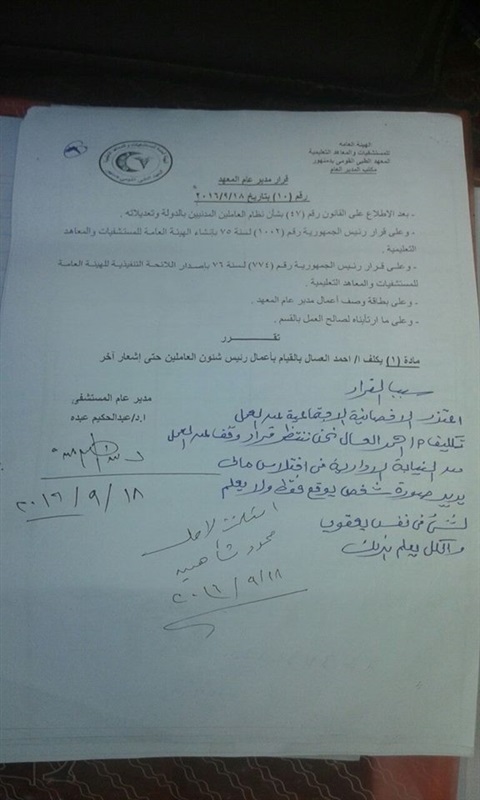 الهيئة العامه
للمستشفيات والمعاهد التعليمية
المعهد الطبى القومى بدمنهور
مكتب المدير العام
قرار مدير عام المعهد
رقم (١٠) بتاريخ ٢٠١٦/٩/١٨
- بعد الاطلاع على القانون رقم (٤٧) بشأن نظام العاملين المدنيين بالدولة وتعديلاته .
- وعلى قرار رئيس الجمهورية رقم (١٠٠٢) لسنة ٧٥ بانشاء الهيئة العامة للمستشفيات والمعاهد
التعليمية .
- وعلى قرار رئيس الجمهورية رقم (٧٧٤) لسنة ٧٦ بإصدار اللائحة التنفيذية للهيئة العامة
للمستشفيات والمعاهد التعليمية .
- وعلى بطاقة وصف أعمال مدير عام المعهد .
- وعلى ما ارتأيناه لصالح العمل بالقسم .
تقـــرر
مادة (١) يكلف ا/ احمد العسال بالقيام بأعمال رئيس شئون العاملين حتى إشعار آخر
مدير عام المستشفى
ا.د/عبدالحكيم عبده
٢٠١٦/٩/١٨
سبب القرار
اعتذر الاخصائية الاجتماعية عند العمل
تكليف ا/ احمد العسال نحن ننتظر قرار وقف عند العمل
من النيابة الادارية فى اختلاس مالى
يريد صورة شخص يوقع فقط ولا يعلم
لشئ فى نفس يعقوب
والكل يعلم بذلك
استلمت لاصل
محمود شاهين
٢٠١٦/٩/١٨